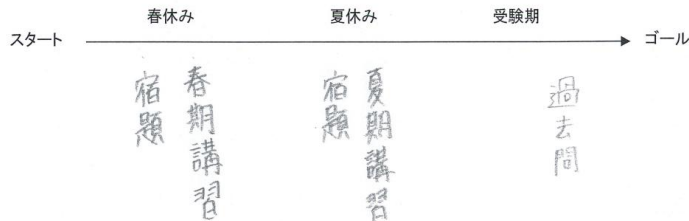 春休み
夏休み
受験期
スタート
ゴール
春期講習
宿題
夏期講習
宿題
過去問